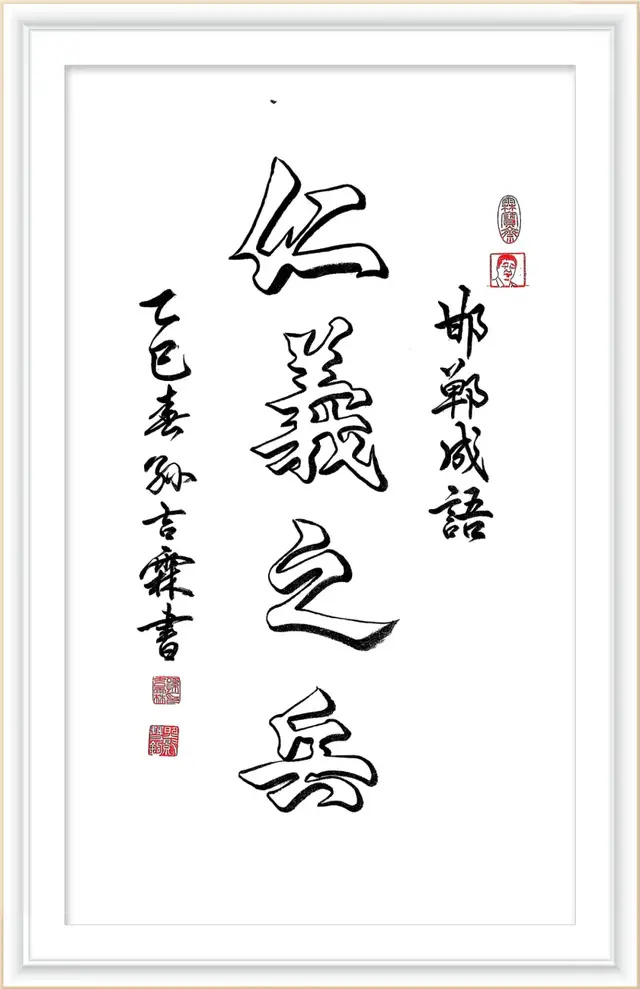 邯鄲成語
仁義之兵
乙巳春孫吉霖書